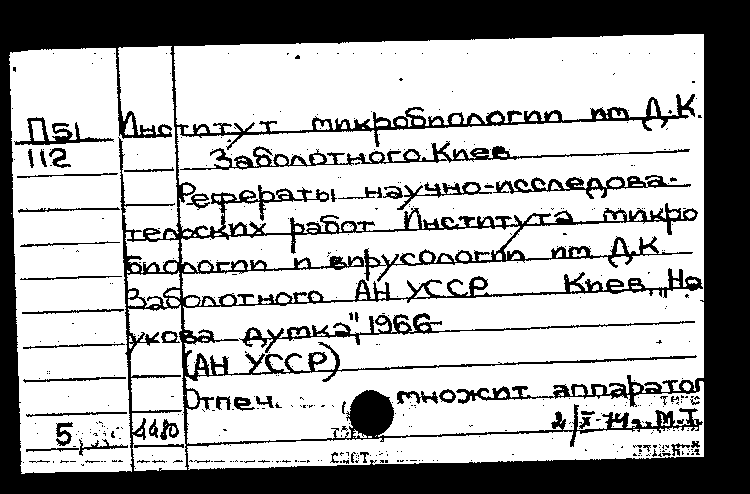 П51 Институт микробиологии им Д.К.
112 Заболотного. Киев.
Рефераты научно-исследова-
тельских работ Института микро
биологии и вирусологии им Д.К.
Заболотного АН УССР Киев, „На
укова думка", 1966
(АН УССР)
Отпеч. множит аппаратом
5 4480 2/X-74г. М.Т.